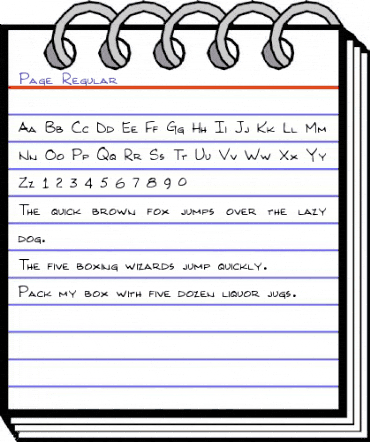 Page Regular
Aa Bb Cc Dd Ee Ff Gg Hh Ii Jj Kk Ll Mm
Nn Oo Pp Qq Rr Ss Tt Uu Vv Ww Xx Yy
Zz 1 2 3 4 5 6 7 8 9 0
The quick brown fox jumps over the lazy
dog.
The five boxing wizards jump quickly.
Pack my box with five dozen liquor jugs.